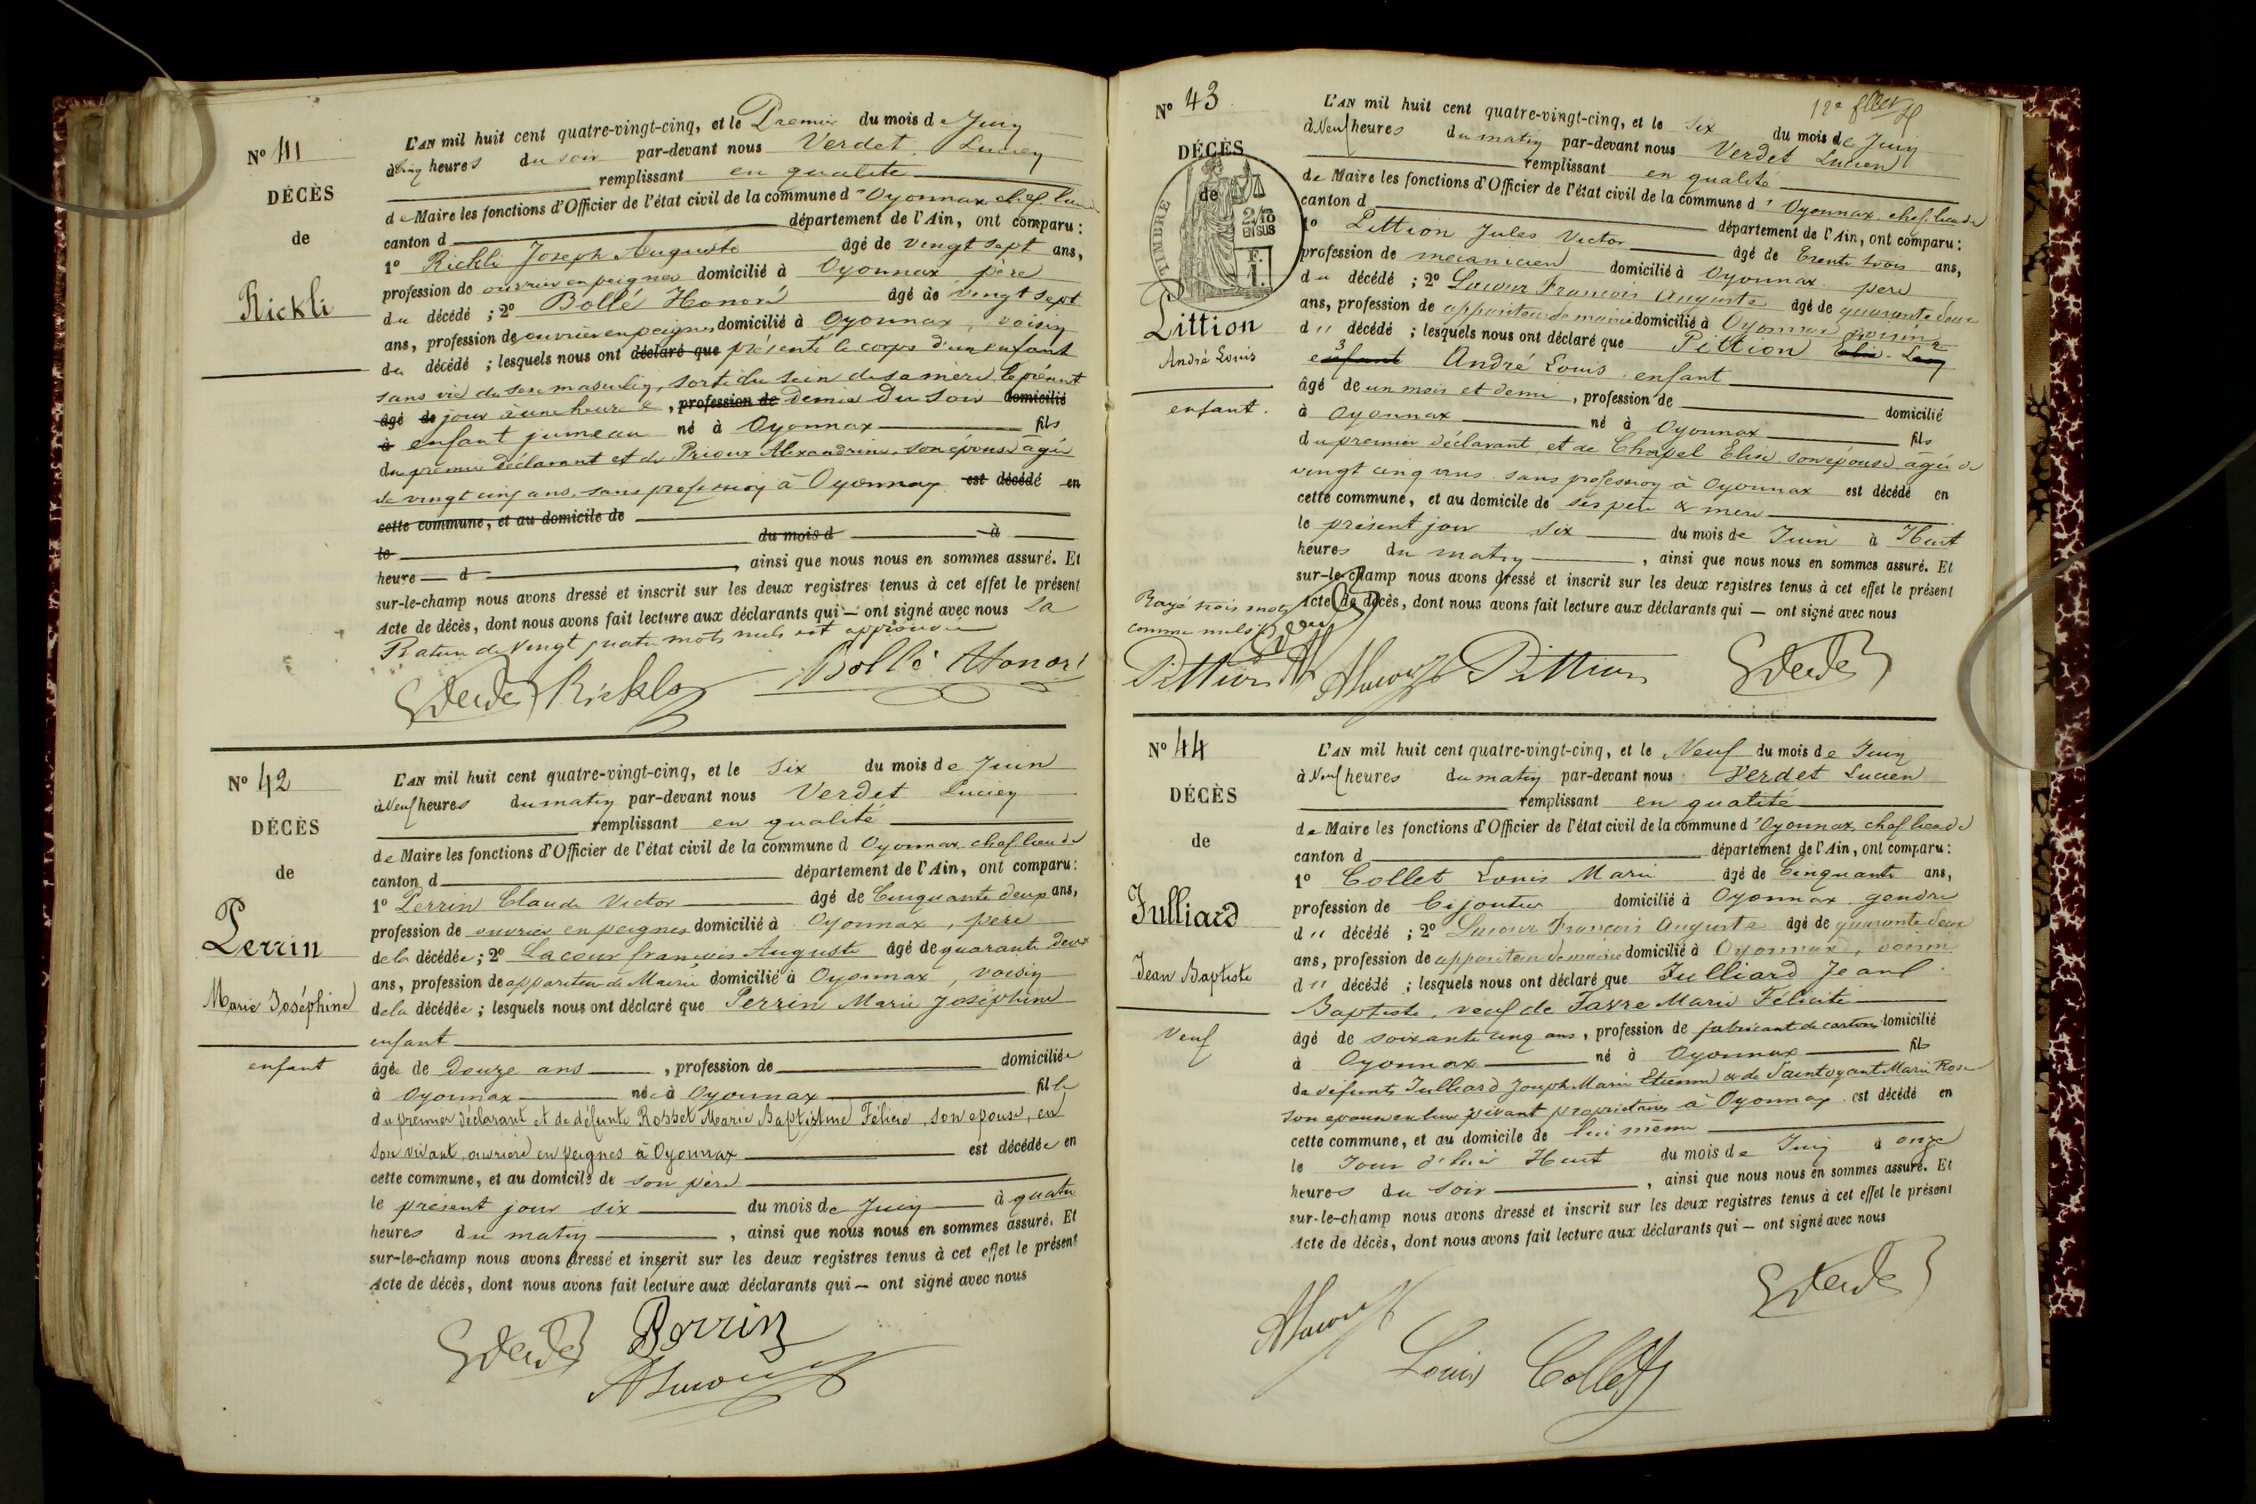 No 41
DÉCÈS
de
Rickli
L'AN mil huit cent quatre-vingt-cinq, et le Premier du mois de Juin
à Cinq heures du soir par-devant nous Verdet Lucien
remplissant en qualité
de Maire les fonctions d'Officier de l'état civil de la commune d'Oyonnax, chef lieu de
canton d département de l'Ain, ont comparu:
1o Rickli Joseph Auguste âgé de vingt sept ans,
profession de ouvrier en peignes domicilié à Oyonnax père
du décédé ; 2o Bollé Honoré âgé de vingt sept
ans, profession de ouvrier en peignes domicilié à Oyonnax, voisin
du décédé ; lesquels nous ont déclaré que présenté le corps d'un enfant
sans vie du sexe masculin, sorti du sein de sa mère, le présent
âgé de jour à une heure &, profession de demie Du soir domicilié
à enfant jumeau né à Oyonnax fils
du premier déclarant et de Prioux Alexandrine, son épouse âgée
de vingt cinq ans, sans profession à Oyonnax est décédé en
cette commune, et au domicile de
le du mois d à
heure d , ainsi que nous nous en sommes assuré. Et
sur-le-champ nous avons dressé et inscrit sur les deux registres tenus à cet effet le présent
Acte de décès, dont nous avons fait lecture aux déclarants qui — ont signé avec nous La
Rature de vingt quatre mots nuls est approuvée
Verdet Rickly Bollé Honoré
No 42
DÉCÈS
de
Perrin
Marie Joséphine
enfant
L'AN mil huit cent quatre-vingt-cinq, et le Six du mois de Juin
à Neuf heures du matin par-devant nous Verdet Lucien
remplissant en qualité
de Maire les fonctions d'Officier de l'état civil de la commune d Oyonnax, chef lieu de
canton d département de l'Ain, ont comparu:
1o Perrin Claude Victor âgé de Cinquante deux ans,
profession de ouvrier en peignes domicilié à Oyonnax, père
de la décédée ; 2o Lacour françois Auguste âgé de quarante deux
ans, profession de appariteur de Mairie domicilié à Oyonnax, voisin
de la décédée ; lesquels nous ont déclaré que Perrin Marie Joséphine
enfant
âgée de Douze ans , profession de domiciliée
à Oyonnax née à Oyonnax fille
du premier déclarant et de défunte Rosset Marie Baptistine Félicie, son épouse, en
son vivant, ouvrière en peignes à Oyonnax est décédée en
cette commune, et au domicile de son père
le présent jour six du mois de Juin à quatre
heures du matin , ainsi que nous nous en sommes assuré. Et
sur-le-champ nous avons dressé et inscrit sur les deux registres tenus à cet effet le présent
Acte de décès, dont nous avons fait lecture aux déclarants qui — ont signé avec nous
Verdet Perrin
No 43
12e
DÉCÈS
de
TIMBRE
2/10
EN SUS
F.
1.
Pittion
André Louis
enfant.
L'AN mil huit cent quatre-vingt-cinq, et le six du mois de Juin
à Neuf heures du matin par-devant nous Verdet Lucien
remplissant en qualité
de Maire les fonctions d'Officier de l'état civil de la commune d'Oyonnax, chef lieu de
canton d département de l'Ain, ont comparu:
1o Pittion Jules Victor âgé de Trente trois ans,
profession de mécanicien domicilié à Oyonnax père
du décédé ; 2o Lacour François Auguste âgé de quarante deux
ans, profession de appariteur de mairie domicilié à Oyonnax voisin
d u décédé ; lesquels nous ont déclaré que Pittion
enfant André Louis enfant
âgé de un mois et demi , profession de domicilié
à Oyonnax né à Oyonnax fils
du premier déclarant, et de Chapel Elisa son épouse âgée de
vingt cinq ans sans profession à Oyonnax est décédé en
cette commune, et au domicile de ses père & mère
le présent jour six du mois de Juin à Huit
heures du matin , ainsi que nous nous en sommes assuré. Et
sur-le-champ nous avons dressé et inscrit sur les deux registres tenus à cet effet le présent
Acte de décès, dont nous avons fait lecture aux déclarants qui — ont signé avec nous
Rayé trois mots
comme nuls
Pittion Pittion Verdet
No 44
DÉCÈS
de
Julliard
Jean Baptiste
Veuf
L'AN mil huit cent quatre-vingt-cinq, et le Neuf du mois de Juin
à Neuf heures du matin par-devant nous Verdet Lucien
remplissant en qualité
de Maire les fonctions d'Officier de l'état civil de la commune d'Oyonnax, chef lieu de
canton d département de l'Ain, ont comparu:
1o Collet Louis Marie âgé de Cinquante ans,
profession de bijoutier domicilié à Oyonnax gendre
d u décédé ; 2o Lacour François Auguste âgé de quarante deux
ans, profession de appariteur de mairie domicilié à Oyonnax, voisin
d u décédé ; lesquels nous ont déclaré que Julliard Jean
Baptiste, veuf de Favre Marie Félicité
âgé de soixante cinq ans, profession de fabricant de cartons domicilié
à Oyonnax né à Oyonnax fils
de défunts Julliard Joseph Marie Etienne & de Saintoyant Marie Rose
son épouse en leur vivant propriétaires à Oyonnax est décédé en
cette commune, et au domicile de lui même
le Jour d'hier Huit du mois de Juin à onze
heures du soir , ainsi que nous nous en sommes assuré. Et
sur-le-champ nous avons dressé et inscrit sur les deux registres tenus à cet effet le présent
Acte de décès, dont nous avons fait lecture aux déclarants qui — ont signé avec nous
Verdet
Louis Collet